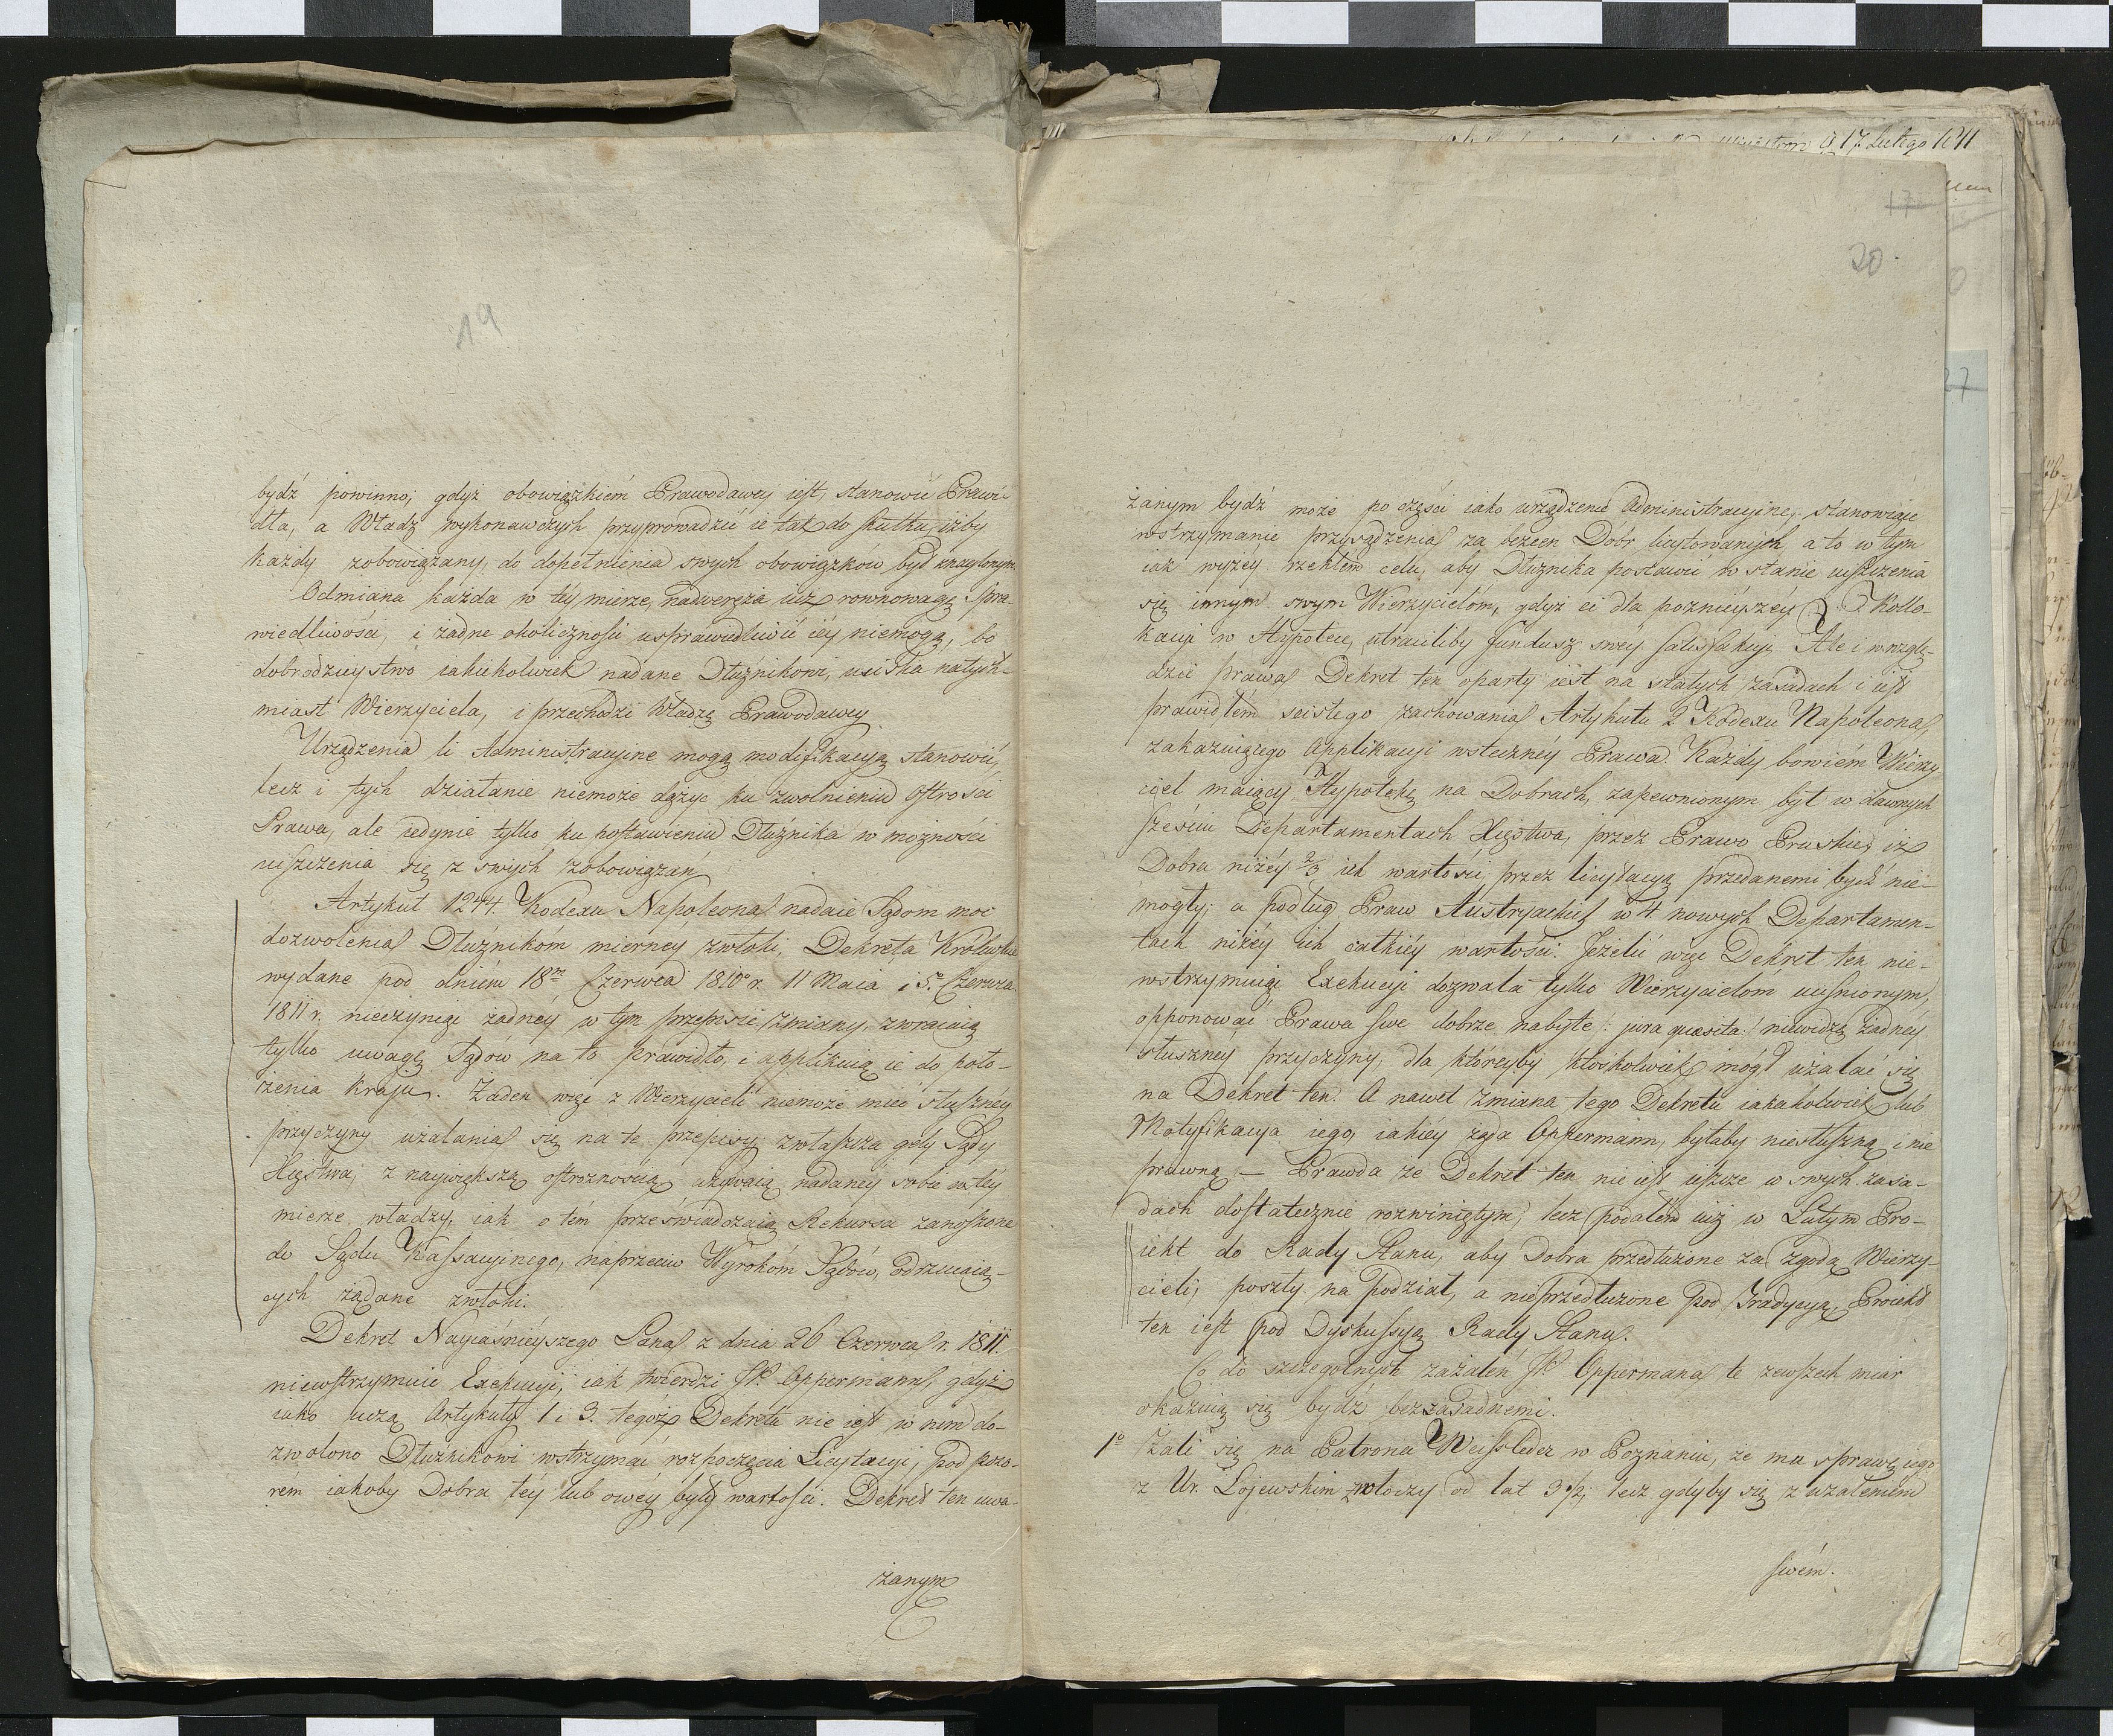 19
bydź powinno; gdyż obowiązkiem Prawodawcy iest, stanowić Prawi-
dła, a Władz wykonawczych przyprowadzić ie tak do skutku, iżby
każdy zobowiązany, do dopełnienia swych obowiązków był znaglonym
Odmiana każda w téy mierze, nadweręża iuż rownowagę Spra-
wiedliwości, i żadne okoliczności usprawiedliwić iéy niemogą, bo
dobrodzieystwo iakiekolwiek nadane Dłużnikowi, uciska natych-
miast Wierzyciela, i przechodzi Władzę Prawodawcy
Urządzenia li Administracyine mogą modifikacyą stanowić,
lecz i tych działanie niemoże dążyć ku zwolnieniu Ostrości
Prawa, ale iedynie tylko ku postawieniu Dłużnika w możności
uiszczenia się z swych zobowiązań
Artykuł 1244. Kodexu Napoleona nadaie Sądom moc
dozwolenia Dłużnikóm mierney zwłoki, Dekreta Królewskie
wydane pod dniem 18m Czerwca 1810o r. 11 Maia i 5o Czerwca
1811 r. nieczyniąc żadnéy w tym przepisie zmiany, zwracaią
tylko uwagę Sądów na to prawidło, i applikuią ie do poło-
żenia Kraju. Żaden więc z Wierzycieli niemoże mieć słuszney
przyczyny użalania się na te przepisy, zwłaszcza gdy Sądy
Xięstwa, z naywiększą ostrożnością używaią nadaney sobie w téy
mierze władzy, iak o tém przeświadczaią Rekursa zanoszone
do Sądu Kassacyinego, naprzeciw Wyrokóm Sądów, odrzucaią-
cych żądane zwłoki.
Dekret Nayiaśnieyszego Pana z dnia 26 Czerwca r. 1811.
niewstrzymuie Exekucyi, iak twierdzi JP. Oppermann, gdyż
iako uczą Artykuły 1 i 3. tegóż Dekretu nie iest w nim do-
zwolono Dłużnikowi wstrzymać rozpoczęcia Licytacyi, pod pozo-
rém iakoby Dobra téy lub owéy były wartości. Dekret ten uwa-
żanym
17
20.
żanym bydź może po części iako urządzenie Administracyine, stanowiące
wstrzymanie przysądzenia za bezcen Dóbr licytowanych, a to w tym
iak wyżéy rzekłem celu, aby Dłużnika postawić w stanie uiszczenia
się innym swym Wierzycielóm, gdyż ci dla poznieyszéy Kollo-
kacyi w Hypotece, utraciliby fundusz swéy satisfakcyi. Ale i wzglę-
dzie prawa Dekret ten oparty iest na stałych zasadach i iest
prawidłem scisłego zachowania Artykułu 2 Kodexu Napoleona,
zakazuiącego Applikacyi wsteczney Prawa. Każdy bowiém Wierzy-
ciel maiący Hypotekę na Dobrach, zapewnionym był w dawnych
sześciu Departamentach Xięstwa, przez Prawo Pruskie, iż
Dobra niżéy 2/3 ich wartości, przez licytacyą przedanemi bydź nie-
mogły; a podług Praw Austryackich w 4. nowych Departamen-
tach niżéy ich całkiéy wartości. Jeżeli więc Dekret ten nie-
wstrzymuiąc Exekucyi dozwala tylko Wierzycielom ucisnionym,
opponować Prawa swe dobrze nabyte /: jura quaesita :/ niewidzę żadnéy
słuszney przyczyny, dla któreyby ktoskolwiek mógł użalać się
na Dekret ten. A nawet zmiana tego Dekretu iakakolwiek lub
Motyfikacya iego, iakiéy żąda Oppermann, byłaby niesłuszną i nie
prawną. – Prawda że Dekret ten nie iest ieszcze w swych zasa-
dach dostatecznie rozwiniętym, lecz podałem iuż w Lutym Pro-
iekt do Rady Stanu, aby Dobra przedłużone za zgodą Wierzy-
cieli, poszły na podział, a nieprzedłużone pod Tradycyą. Proiekt
ten iest pod Dyskussyą Rady Stanu.
Co do szczególnych zażaleń JP. Oppermana te zewszech miar
okazuią się bydź bezzasadnemi.
1o Żali się na Patrona Weissleder w Poznaniu, że mu sprawę iego
z Ur. Łojewskim zwłoczy od lat 3 1/2, lecz gdyby się z użaleniem
swém.
17 Lutego 1811
27